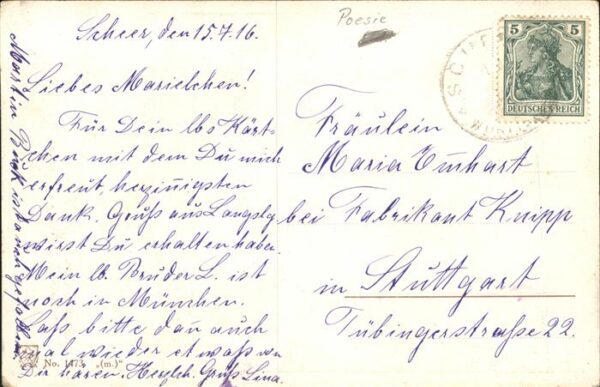 Poesie
Scheer, den 15.7.16.
Liebes Mariechen!
Für Dein lbs Kärt-
chen mit dem Du mich
erfreut, herzinnigsten
Dank. Gruß aus
wirst Du erhalten haben.
Mein lb. Bruder L. ist
noch in München.
Laß bitte dan auch
mal wieder etwaß von
Dir hören. Herzlch. Gruß Lina.
Martin Bük ist auch gefallen
No. 1473 „(m.)"
5 5
DEUTSCHES REICH
Fräulein
Maria Emhart
bei Fabrikant Knipp
in Stuttgart
Tübingerstraße 22.